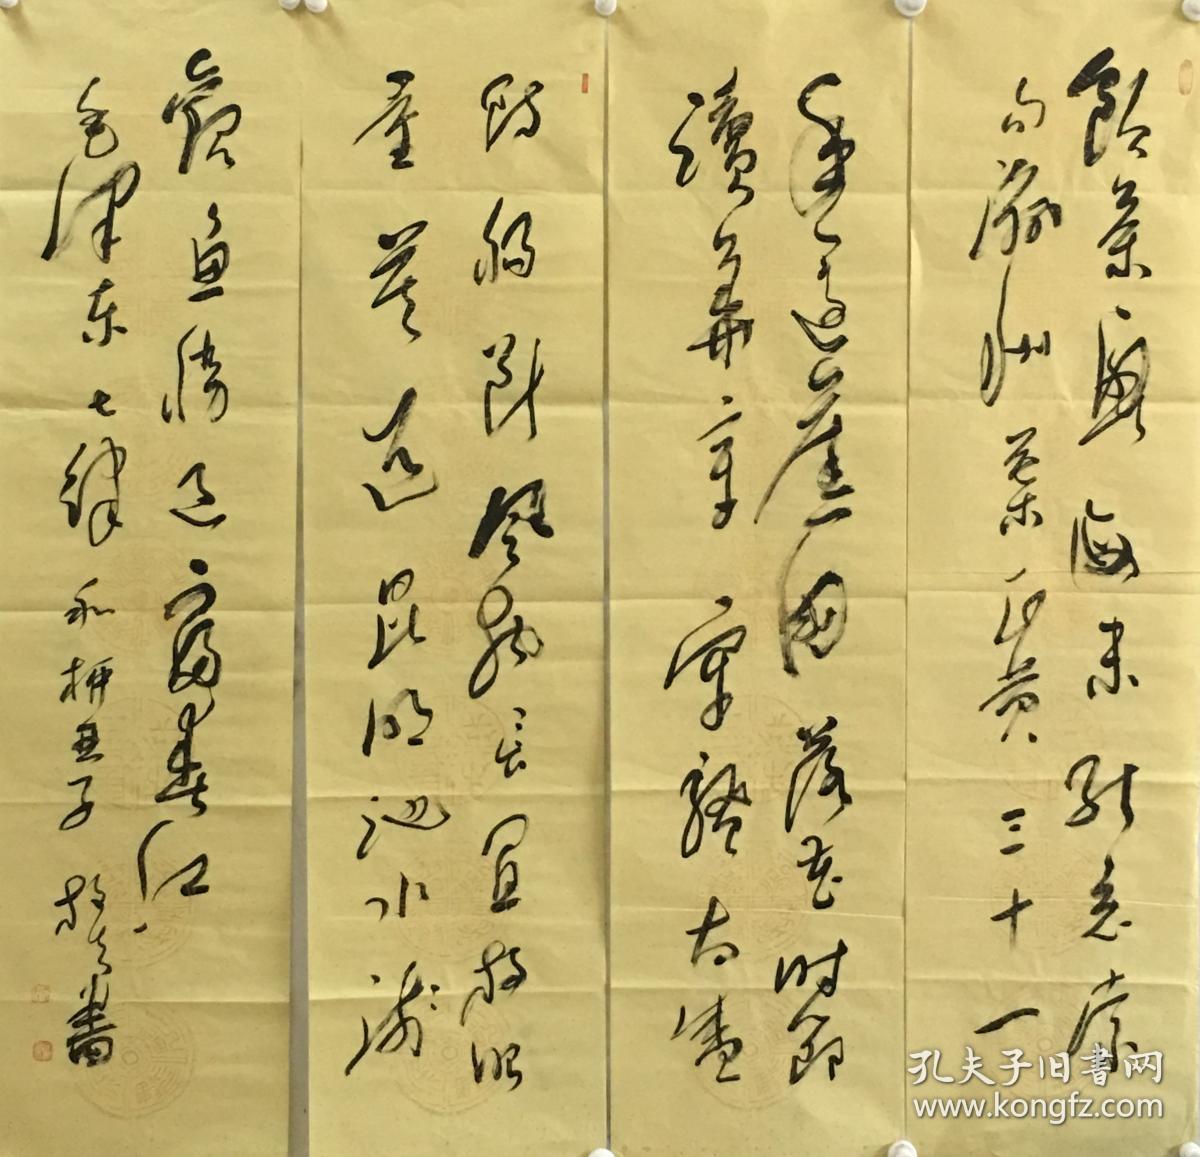 飲茶粵海未能忘索
句渝州葉正黃三十一
年還舊國落花時節
讀華章牢騷太盛
防腸斷風物長宜放眼
量莫道昆明池水淺
觀魚勝過富春江
毛澤東七律和柳亞子 書
孔夫子旧书网
www.kongfz.com